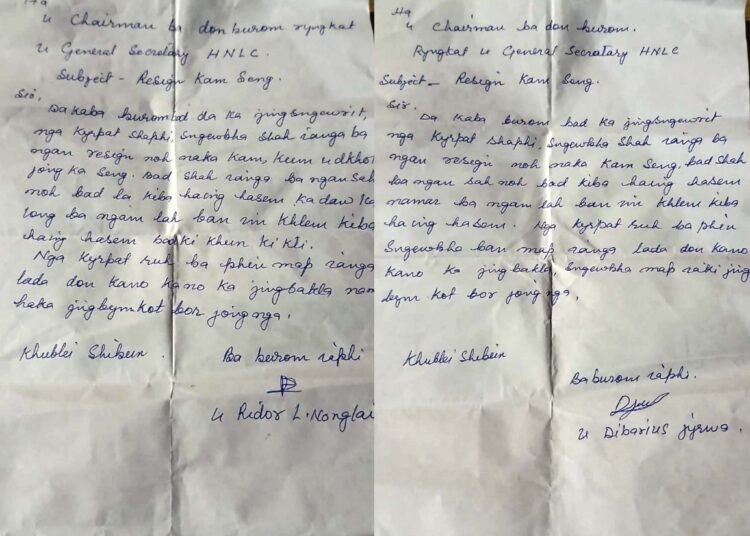 Ha
u Chairman ba don burom ryngkat
u General Secretary HNLC.
Subject - Resign Kam Seng.
Sir,
Da kaba burom bad da ka jingsngewrit,
nga kyrpat shaphi, sngewbha shah ïanga ba
ngan resign noh naka kam, kum u dkhot
jong ka Seng. bad shah ïanga ba ngan sah
noh bad la kiba haïing hasem ka daw ka
long ba ngam lah ban ïin khlem kiba
haïing hasem bad ki khun ki kti.
Nga kyrpat ruh ba phin map ïanga
lada don kano kano ka jingbakla nam
haka jingbymkot bor jong nga.
Khublei Shibun.
Ba burom ïaphi
u Ridor L. Nonglai
Ha
u Chairman ba don burom.
Ryngkat u General Secratary HNLC
Subject - Resign Kam Seng.
Sir.
Da kaba burom bad ka jingsngewrit
nga kyrpat shaphi, Sngewbha shah ïanga ba
ngan resign noh naka kam Seng, bad shah
ba ngan sah noh bad kiba haïing hasem
namar ba ngam lah ban ïin khlem kiba
haïing hasem. Nga kyrpat ruh ba phin
Sngewbha ban map ïanga lada don kano
kano ka jingbakla, Sngewbha map ïaki jing
beym kot bor jong nga,
Khublei Shibun
Ba burom ïaphi.
u Dibarius jyrwa.